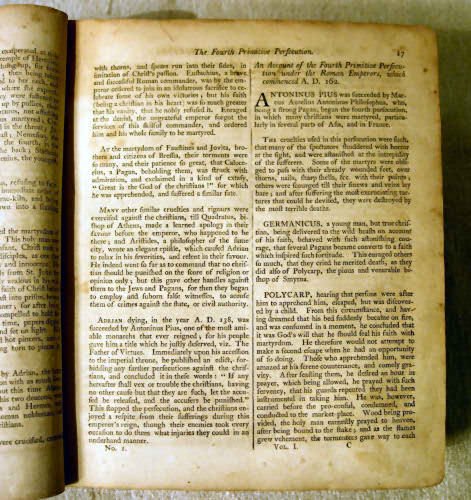 exaſperated at
temple of
then being
where
up by
of the
martyrs
in the
the fourth, in
bed by the
refuſing to
into a
the martyrdom
This holy man
and innocent,
from St. John
of his
him into priſon,
after
time, pepper
and ſet on
hot pincers, and
torn to pieces
by Adrian, the
with as much
this time
his two deacons,
and Hermes, with
were crucified,
The Fourth Primitive Perſecution. 17
with thorns, and ſpears run into their ſides, in
imitation of Chriſt's paſſion. Euſtachius, a brave
and ſucceſsful Roman commander, was by the em-
peror ordered to join in an idolatrous ſacrifice to ce-
lebrate ſome of his own victories; but his faith
(being a chriſtian in his heart) was ſo much greater
than his vanity, that he nobly refuſed it. Enraged
at the denial, the ungrateful emperor forgot the
ſervices of this ſkilful commander, and ordered
him and his whole family to be martyred.
At the martyrdom of Fauſtines and Jovita, bro-
thers and citizens of Breſſia, their torments were
ſo many, and their patience ſo great, that Calocе-
rius, a Pagan, beholding them, was ſtruck with
admiration, and exclaimed in a kind of extaſy,
"Great is the God of the chriſtians!" for which
he was apprehended, and ſuffered a ſimilar fate.
Many other ſimilar cruelties and rigours were
exerciſed againſt the chriſtians, till Quadratus, bi-
ſhop of Athens, made a learned apology in their
favour before the emperor, who happened to be
there; and Ariſtides, a philoſopher of the ſame
city, wrote an elegant epiſtle, which cauſed Adrian
to relax in his ſeverities, and relent in their favour.
He indeed went ſo far as to command that no chriſ-
tian ſhould be puniſhed on the ſcore of religion or
opinion only; but this gave other handles againſt
them to the Jews and Pagans, for then they began
to employ and ſuborn falſe witneſſes, to accuſe
them of crimes againſt the ſtate, or civil authority.
Adrian dying, in the year A. D. 138, was
ſucceeded by Antoninus Pius, one of the moſt ami-
able monarchs that ever reigned, for his people
gave him a title which he juſtly deſerved, viz. The
Father of Virtues. Immediately upon his acceſſion
to the imperial throne, he publiſhed an edict, for-
bidding any further perſecutions againſt the chriſ-
tians, and concluded it in theſe words: "If any
hereafter ſhall vex or trouble the chriſtians, having
no other cauſe but that they are ſuch, let the ac-
cuſed be releaſed, and the accuſers be puniſhed."
This ſtopped the perſecution, and the chriſtians en-
joyed a reſpite from their ſufferings during this
emperor's reign, though their enemies took every
occaſion to do them what injuries they could in an
underhand manner.
No. 1.
An Account of the Fourth Primitive Perſecu-
tion under the Roman Emperors, which
commenced A. D. 162.
ANTONINUS PIUS was ſucceeded by Mar-
cus Aurelius Antoninus Philoſophus, who,
being a ſtrong Pagan, began the fourth perſecution,
in which many chriſtians were martyred, particu-
larly in ſeveral parts of Aſia, and in France.
The cruelties uſed in this perſecution were ſuch,
that many of the ſpectators ſhuddered with horror
at the ſight, and were aſtoniſhed at the intrepidity
of the ſufferers. Some of the martyrs were obli-
ged to paſs with their already wounded feet, over
thorns, nails, ſharp ſhells, &c. with their points;
others were ſcourged till their ſinews and veins lay
bare; and after ſuffering the moſt excruciating tor-
tures that could be deviſed, they were deſtroyed by
the moſt terrible deaths.
GERMANICUS, a young man, but true chriſ-
tian, being delivered to the wild beaſts on account
of his faith, behaved with ſuch aſtoniſhing cou-
rage, that ſeveral Pagans became converts to a faith
which inſpired ſuch fortitude. This enraged others
ſo much, that they cried he merited death, as they
did alſo of Polycarp, the pious and venerable bi-
ſhop of Smyrna.
POLYCARP, hearing that perſons were after
him to apprehend him, eſcaped, but was diſcover-
ed by a child. From this circumſtance, and hav-
ing dreamed that his bed ſuddenly became on fire,
and was conſumed in a moment, he concluded that
it was God's will that he ſhould ſeal his faith with
martyrdom. He therefore would not attempt to
make a ſecond eſcape when he had an opportunity
of ſo doing. Thoſe who apprehended him, were
amazed at his ſerene countenance, and comely gra-
vity. After feaſting them, he deſired an hour in
prayer, which being allowed, he prayed with ſuch
fervency, that his guards repented they had been
inſtrumental in taking him. He was, however,
carried before the pro-conſul, condemned, and
conducted to the market place. Wood being pro-
vided, the holy man earneſtly prayed to heaven,
after being bound to the ſtake; and as the flames
grew vehement, the tormentors gave way to each
Vol. I. C